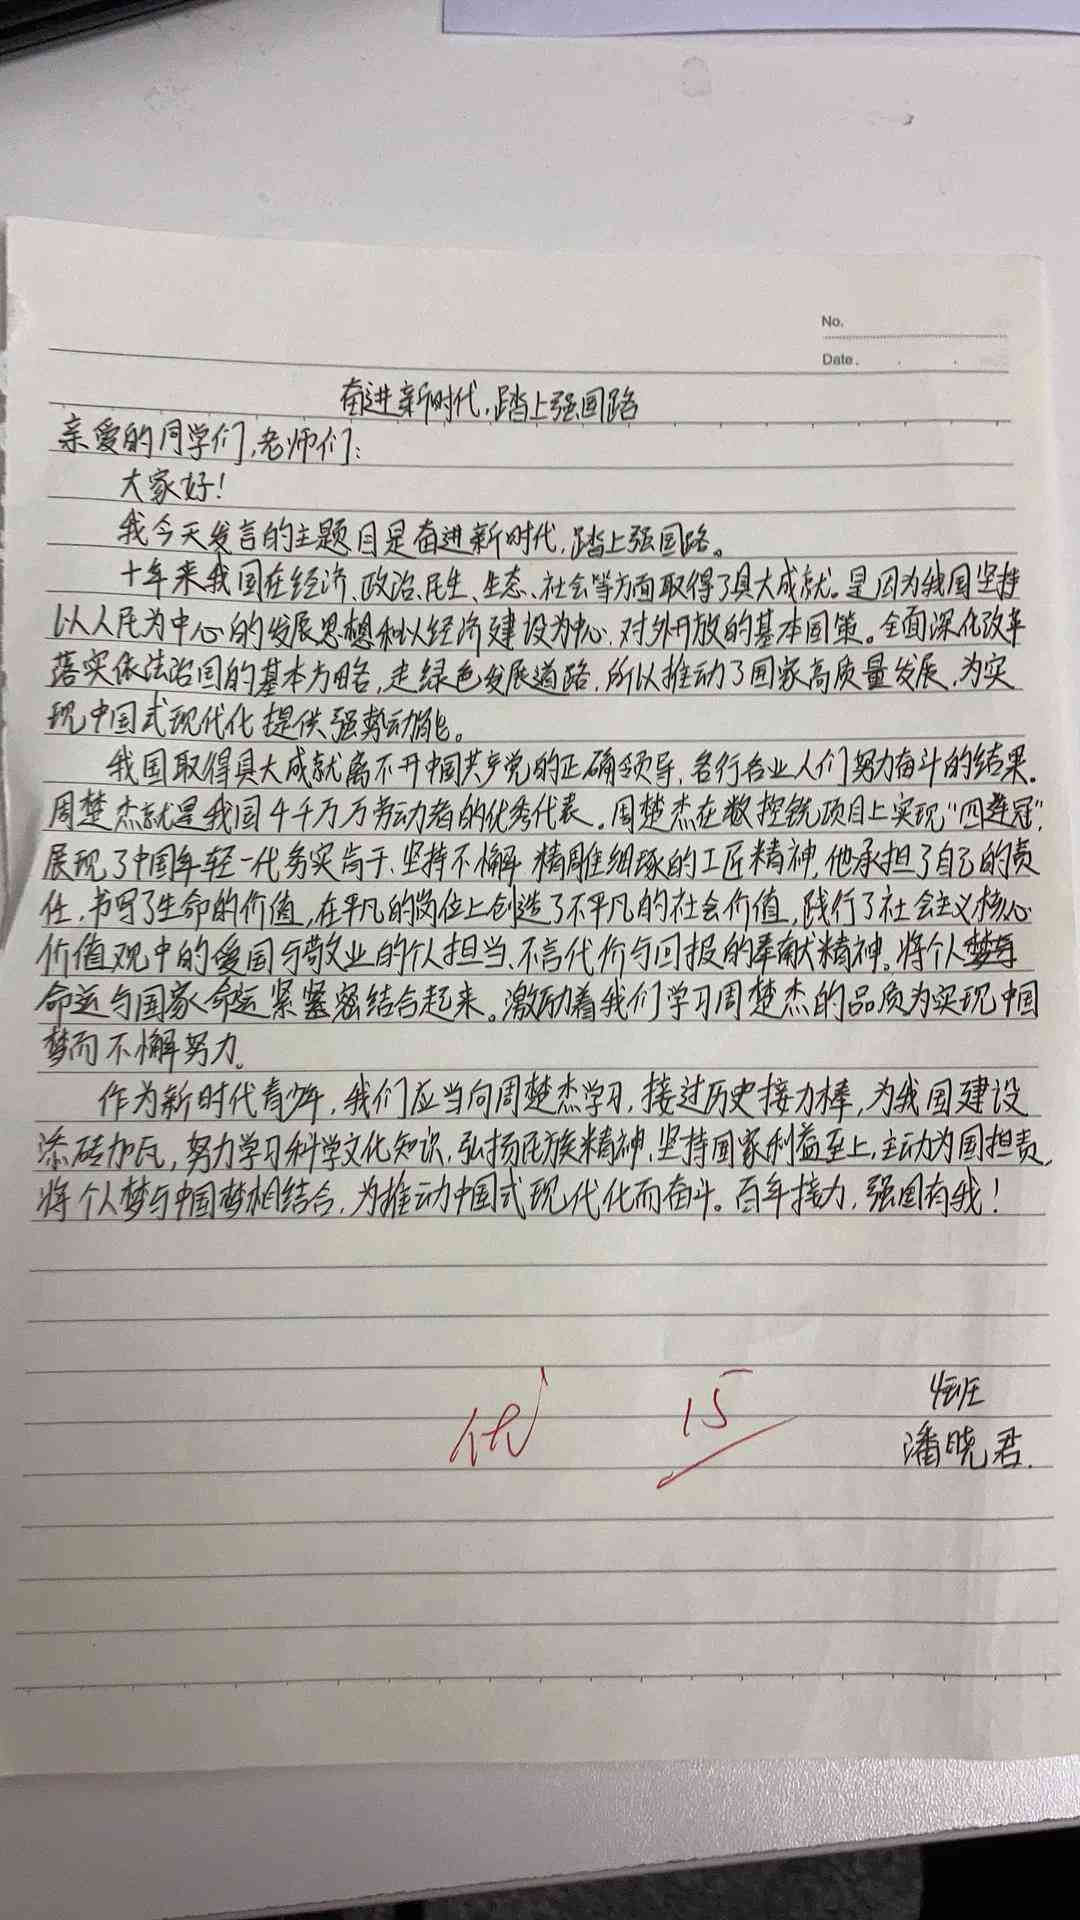 No.
Date.
奋进新时代,踏上强国路
亲爱的同学们,老师们:
大家好!
我今天发言的主题目是奋进新时代,踏上强国路。
十年来我国在经济、政治、民生、生态、社会等方面取得了具大成就。是因为我国坚持
以人民为中心的发展思想和以经济建设为中心、对外开放的基本国策。全面深化改革
落实依法治国的基本方略,走绿色发展道路,所以推动了国家高质量发展,为实
现中国式现代化提供强势动能。
我国取得具大成就离不开中国共产党的正确领导,各行各业人们努力奋斗的结果。
周楚杰就是我国千千万万劳动者的优秀代表。周楚杰在数控铣项目上实现“四连冠”,
展现了中国年轻一代务实肯干、坚持不懈、精雕细琢的工匠精神,他承担了自己的责
任,书写了生命的价值,在平凡的岗位上创造了不平凡的社会价值,践行了社会主义核心
价值观中的爱国与敬业的个人担当、不言代价与回报的奉献精神。将个人
命运与国家命运紧紧密结合起来。激励着我们学习周楚杰的品质为实现中国
梦而不懈努力。
作为新时代青少年,我们应当向周楚杰学习,接过历史接力棒,为我国建设
添砖加瓦,努力学习科学文化知识,弘扬民族精神,坚持国家利益至上,主动为国担责,
将个人梦与中国梦相结合,为推动中国式现代化而奋斗。百年接力,强国有我!
优 15
4班
潘晓君.